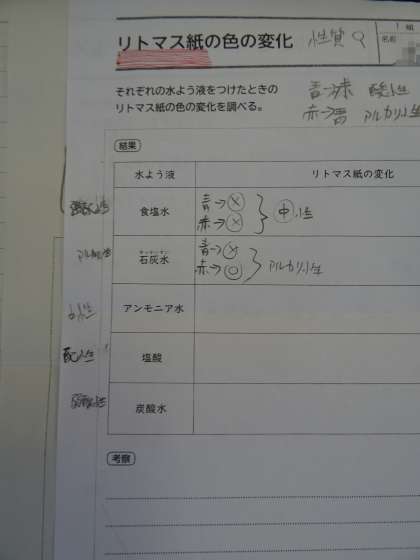 リトマス紙の色の変化 性質
1 組
名前
それぞれの水よう液をつけたときの
リトマス紙の色の変化を調べる。
青→赤 酸性
赤→青 アルカリ性
結果
水よう液 リトマス紙の変化
食塩水 青→× 赤→× 中性
石灰水 青→× 赤→○ アルカリ性
せっかいすい
アンモニア水
塩酸
炭酸水
考察